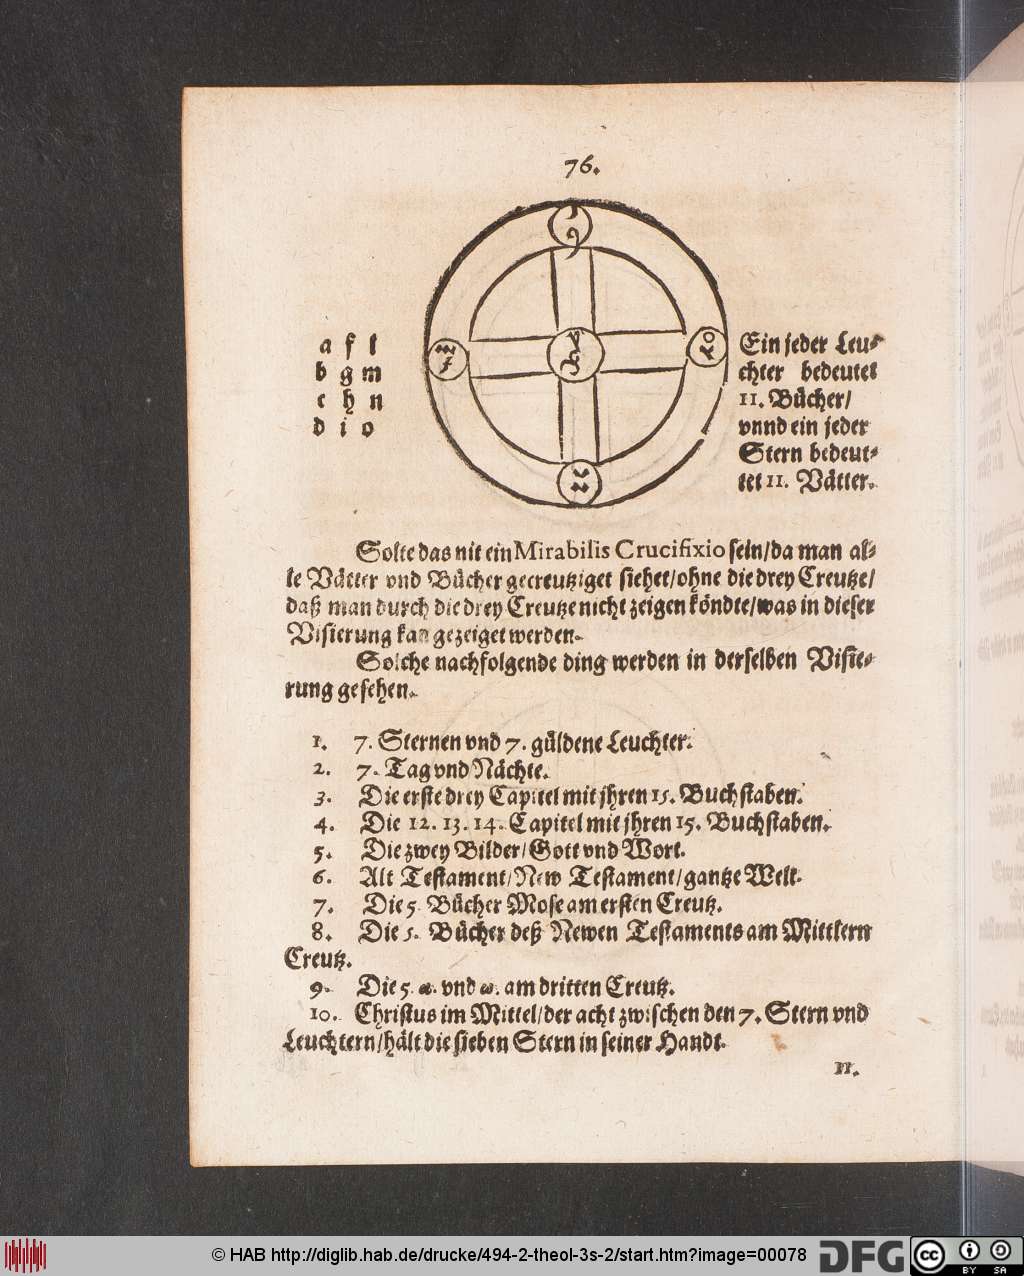 76.
a f l
b g m
c h n
d i o
Ein jeder Leu-
chter bedeutet
11. Bücher/
vnnd ein jeder
Stern bedeut-
tet 11. Vätter.
Solte das nit ein Mirabilis Crucifixio sein/da man al-
le Vätter vnd Bücher gecreutziget siehet/ohne die drey Creutze/
daß man durch die drey Creutze nicht zeigen köndte/was in dieser
Visierung kan gezeiget werden.
Solche nachfolgende ding werden in derselben Visie-
rung gesehen.
1. 7. Sternen vnd 7. güldene Leuchter.
2. 7. Tag vnd Nächte.
3. Die erste drey Capitel mit jhren 15. Buchstaben.
4. Die 12. 13. 14. Capitel mit jhren 15. Buchstaben.
5. Die zwey Bilder/Gott vnd Wort.
6. Alt Testament/New Testament/gantze Welt.
7. Die 5. Bücher Mose am ersten Creutz.
8. Die 5. Bücher deß Newen Testaments am Mittlern
Creutz.
9. Die 5. α. vnd ω. am dritten Creutz.
10. Christus im Mittel/der acht zwischen den 7. Stern vnd
Leuchtern/hält die sieben Stern in seiner Handt.
11.
© HAB http://diglib.hab.de/drucke/494-2-theol-3s-2/start.htm?image=00078
DFG
cc BY SA